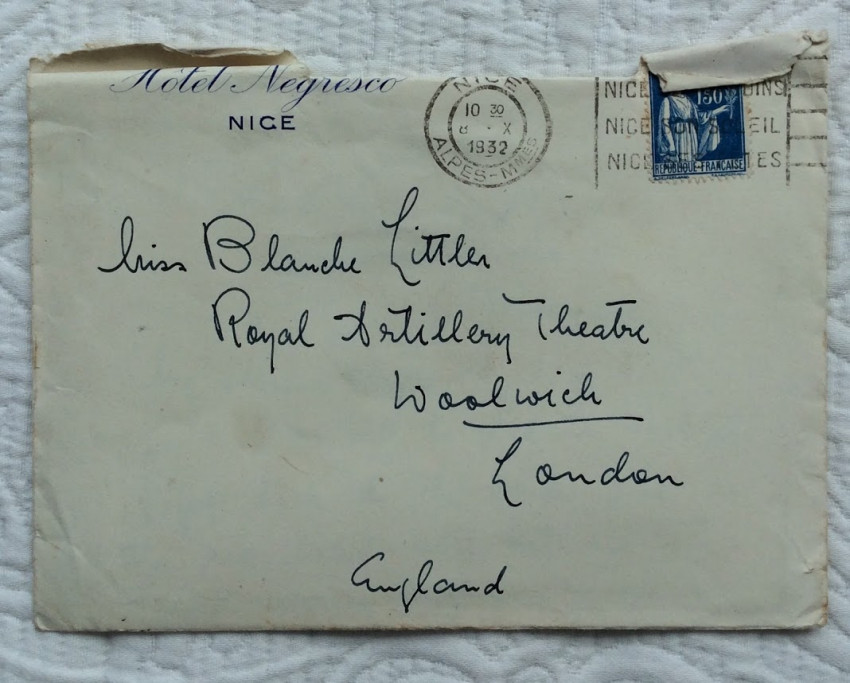 Hotel Negresco
NICE
NICE
10 30
8 · X
1932
ALPES-MMES
NICE
NICE SON SOLEIL
NICE
1F50
REPUBLIQUE FRANÇAISE
Miss Blanche Littler
Royal Artillery Theatre
Woolwich
London
England